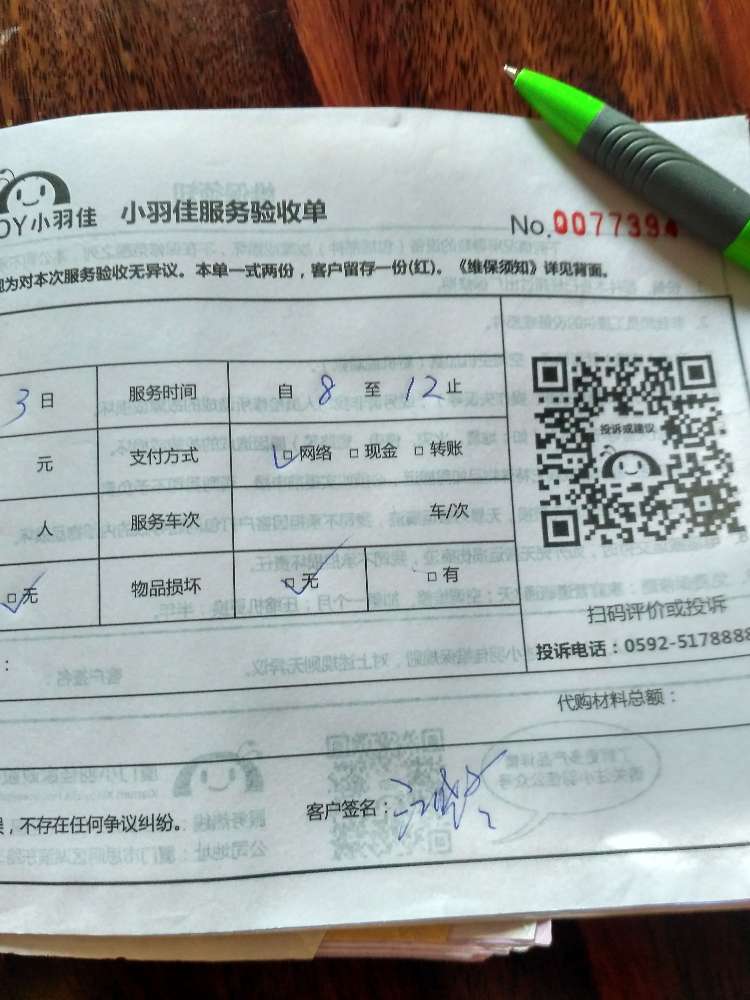 OY小羽佳 小羽佳服务验收单
No.0077394
为对本次服务验收无异议。本单一式两份，客户留存一份(红)。《维保须知》详见背面。
3日 服务时间 自 8 至 12止
元 支付方式 □网络 □现金 □转账
人 服务车次 车/次
□无 物品损坏 □无 □有
投诉或建议
扫码评价或投诉
投诉电话：0592-5178888
：
代购材料总额：
，不存在任何争议纠纷。
客户签名：